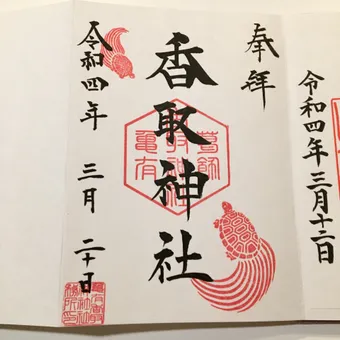 奉拝
香取神社
令和四年 三月 二十日
令和四年三月十二日
亀有